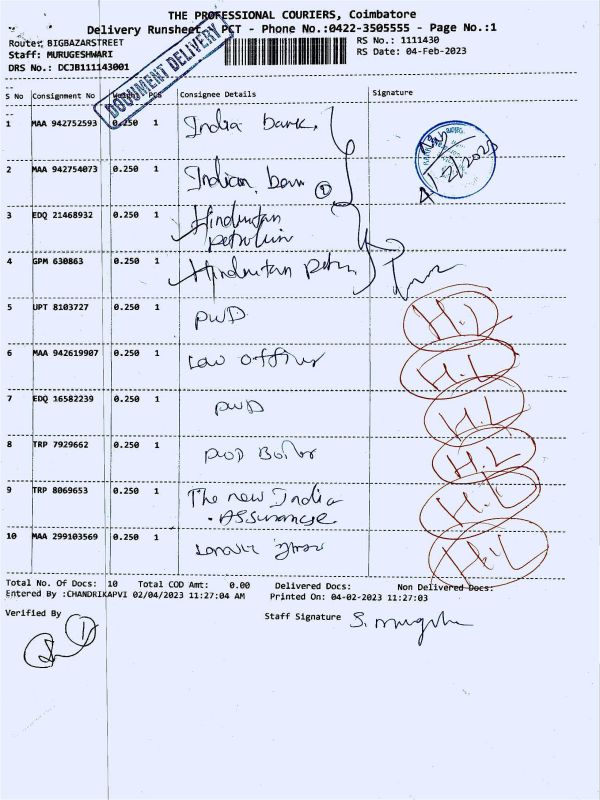 THE PROFESSIONAL COURIERS, Coimbatore
Delivery Runsheet PCT - Phone No.:0422-3505555 - Page No.:1
Route: BIGBAZARSTREET
RS No.: 1111430
Staff: MURUGESHWARI
RS Date: 04-Feb-2023
DRS No.: DCJB111143001
DOCUMENT DELIVERY
S No Consignment No Weight Pcs Consignee Details Signature
1 MAA 942752593 0.250 1 India bank.
2 MAA 942754073 0.250 1 Indian. ban 1
4/2/2023
3 EDQ 21468932 0.250 1 Hindustan
petrolium
4 GPM 630863 0.250 1 Hindustan
5 UPT 8103727 0.250 1 PWD
6 MAA 942619907 0.250 1 Law officer H.L
7 EDQ 16582239 0.250 1 PWD H.L
8 TRP 7929662 0.250 1 H.L
9 TRP 8069653 0.250 1 The new India H.L
Assurance
10 MAA 299103569 0.250 1 H.L
Total No. Of Docs: 10 Total COD Amt: 0.00 Delivered Docs: Non Delivered Docs:
Entered By :CHANDRIKAPVI 02/04/2023 11:27:04 AM Printed On: 04-02-2023 11:27:03
Verified By
Staff Signature